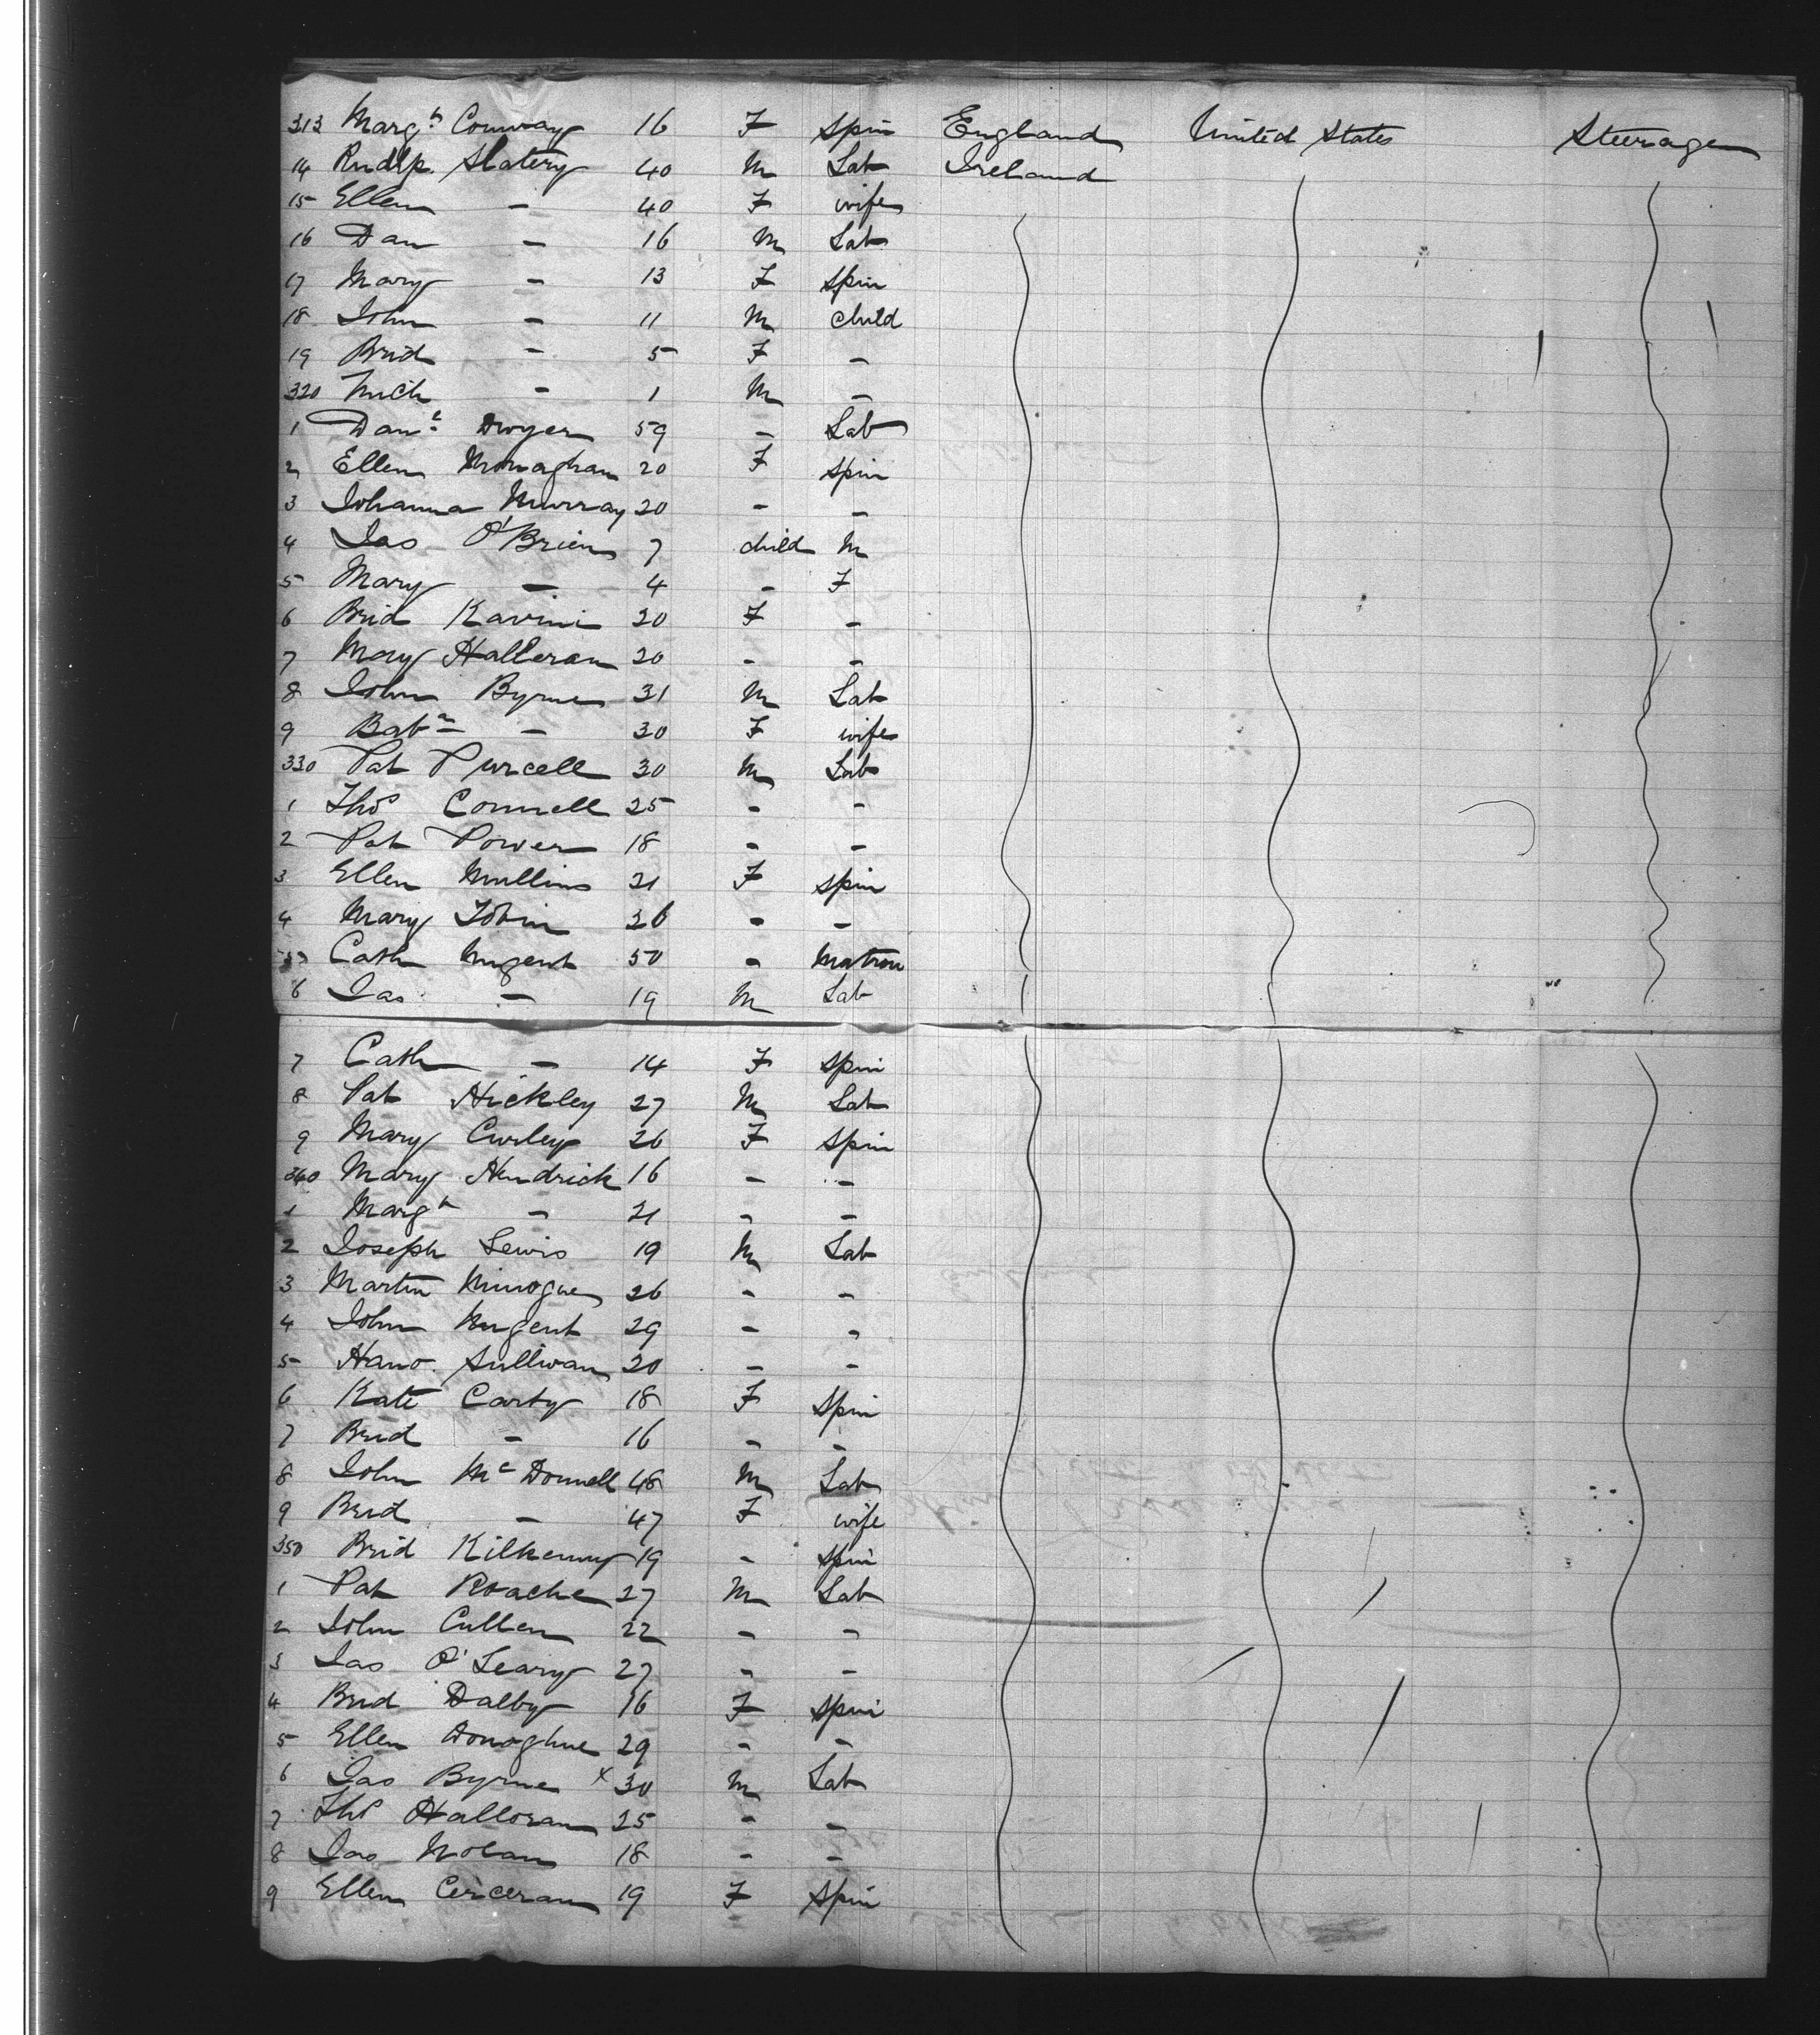 313 Marg.t Conway 16 F Spin England United States Steerage
14 Rudlp. Slatery 40 M Lab Ireland
15 Ellen - 40 F wife
16 Dan - 16 M Lab
17 Mary - 13 F Spin
18 John - 11 M child
19 Brid - 5 F -
320 Mich - 1 M -
1 Danl Dwyer 59 - Lab
2 Ellen Monaghan 20 F Spin
3 Johanna Murray 20 - -
4 Jas O'Brien 7 child M
5 Mary - 4 - F
6 Brid Kavini 20 F -
7 Mary Halleran 20 - -
8 John Byrne 31 M Lab
9 Bab - 30 F wife
330 Pat Purcell 30 M Lab
1 Thos Connell 25 - -
2 Pat Power 18 - -
3 Ellen Mullins 21 F Spin
4 Mary Tobin 26 - -
5 Cath Nugent 50 - Matron
6 Jas - 19 M Lab
7 Cath - 14 F Spin
8 Pat Hickley 27 M Lab
9 Mary Curley 26 F Spin
340 Mary Hendrick 16 - -
1 Margt - 21 - -
2 Joseph Lewis 19 M Lab
3 Martin Minogue 26 - -
4 John Nugent 29 - -
5 Hano. Sullivan 20 - -
6 Kate Carty 18 F Spin
7 Brid - 16 - -
8 John McDonnell 48 M Lab
9 Brid - 47 F wife
350 Brid Kilkenny 19 - Spin
1 Pat Roache 27 M Lab
2 John Cullen 22 - -
3 Jas O'Leary 27 - -
4 Brid Dalby 16 F Spin
5 Ellen Donoghue 29 - -
6 Jas Byrne x 30 M Lab
7 Thos Halloran 25 - -
8 Jas Nolan 18 - -
9 Ellen Cerceran 19 F Spin